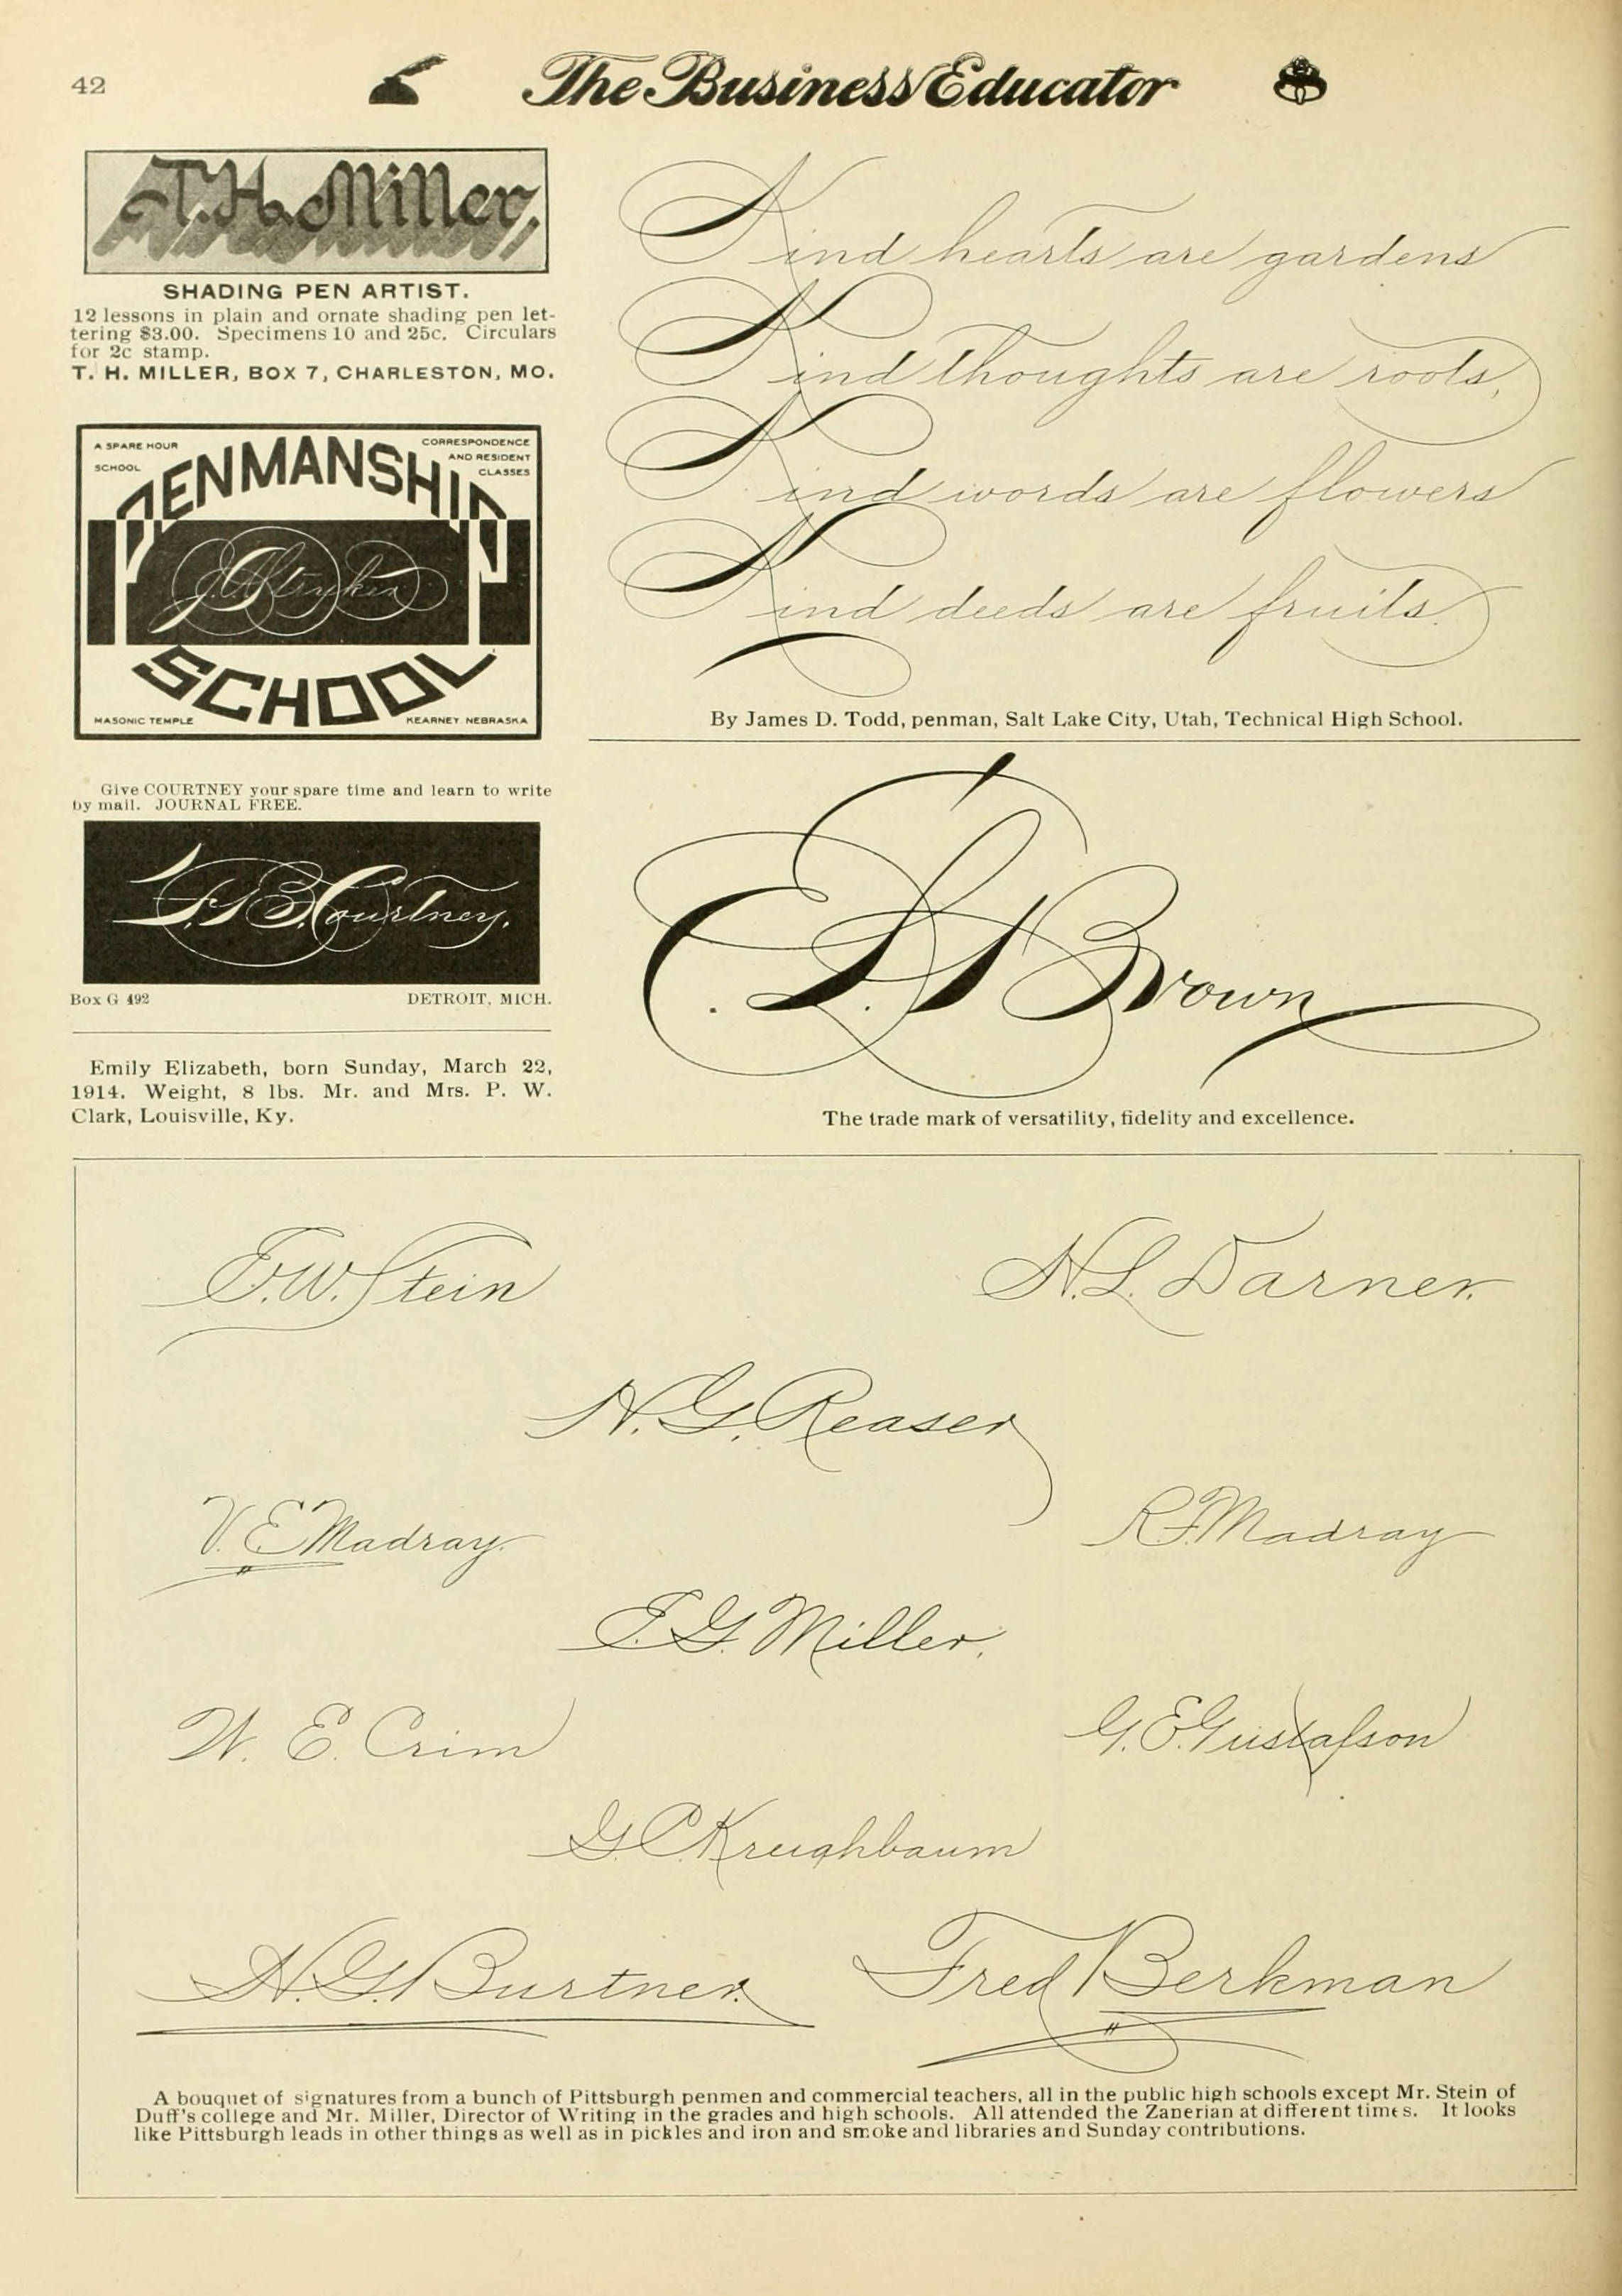 42
The Business Educator
T. H. Miller,
SHADING PEN ARTIST.
12 lessons in plain and ornate shading pen let-
tering $3.00. Specimens 10 and 25c. Circulars
for 2c stamp.
T. H. MILLER, BOX 7, CHARLESTON, MO.
A SPARE HOUR
SCHOOL
CORRESPONDENCE
AND RESIDENT
CLASSES
PENMANSHIP
J. A. Stryker
SCHOOL
MASONIC TEMPLE
KEARNEY NEBRASKA
Give COURTNEY your spare time and learn to write
by mail. JOURNAL FREE.
F. B. Courtney.
Box G 492
DETROIT, MICH.
Emily Elizabeth, born Sunday, March 22,
1914. Weight, 8 lbs. Mr. and Mrs. P. W.
Clark, Louisville, Ky.
Kind hearts are gardens
Kind thoughts are roots,
Kind words are flowers
Kind deeds are fruits.
By James D. Todd, penman, Salt Lake City, Utah, Technical High School.
E. L. Brown
The trade mark of versatility, fidelity and excellence.
E. W. Stein
H. L. Darner.
H. G. Reaser
V. E. Madray.
R. F. Madray
E. G. Miller.
W. E. Crim
G. E. Gustafson
G. C. Kreughbaum
H. G. Burtner.
Fred Berkman
A bouquet of signatures from a bunch of Pittsburgh penmen and commercial teachers, all in the public high schools except Mr. Stein of
Duff's college and Mr. Miller, Director of Writing in the grades and high schools. All attended the Zanerian at different times. It looks
like Pittsburgh leads in other things as well as in pickles and iron and smoke and libraries and Sunday contributions.